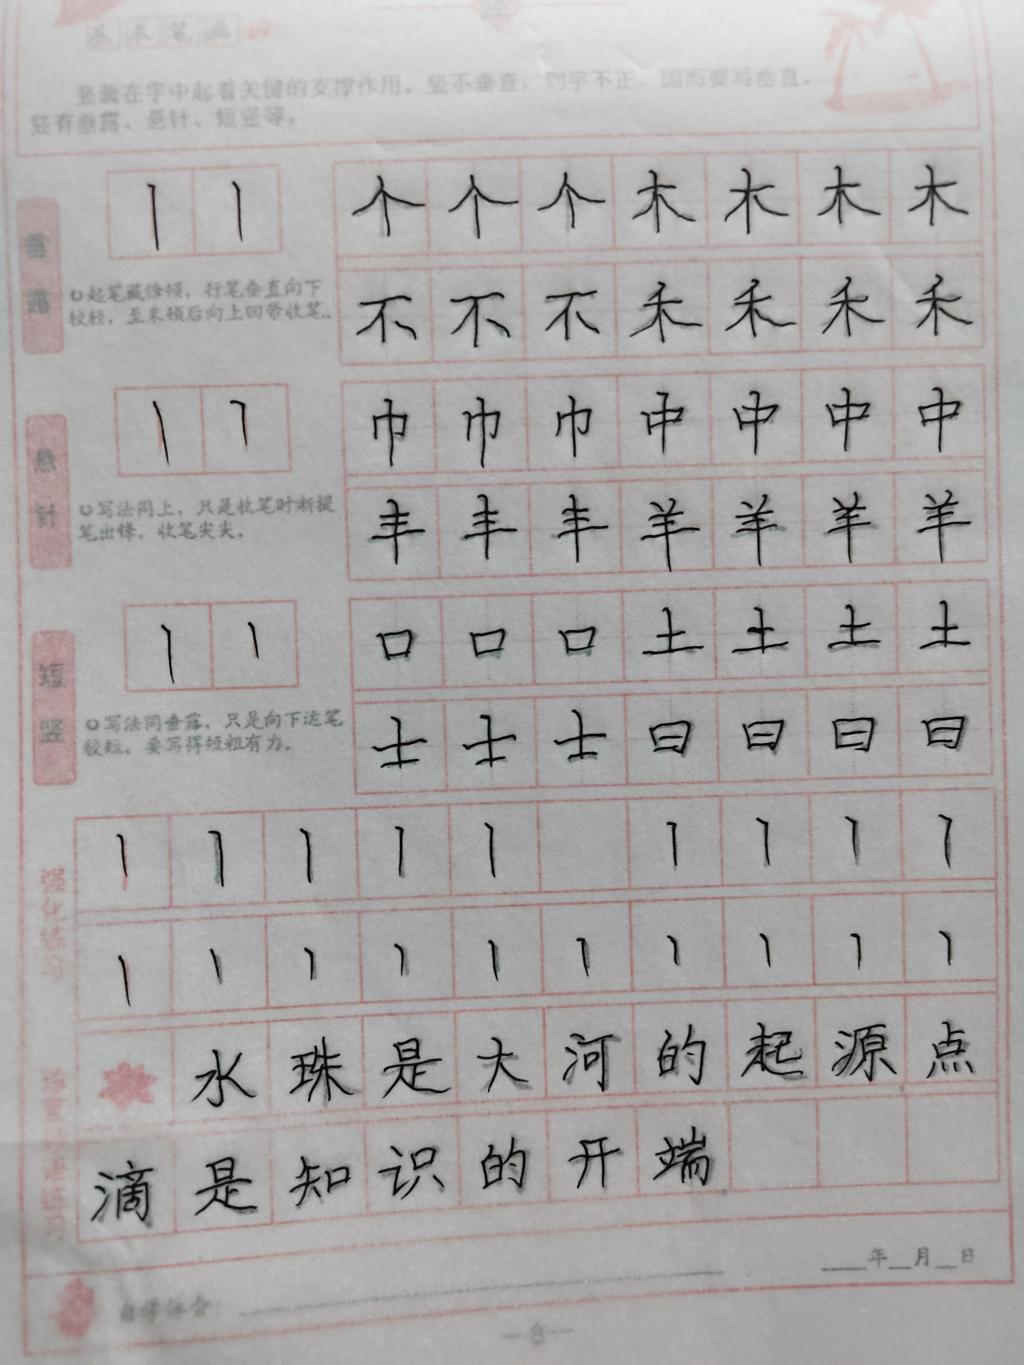 竖
基本笔画
竖画在字中起着关键的支撑作用。竖不垂直，则字不正，因而要写垂直。
竖有垂露、悬针、短竖等。
垂露
个个个木木木木
不不不禾禾禾禾
起笔藏锋顿，行笔垂直向下
较轻，至末顿后向上回带收笔。
悬针
巾巾巾中中中中
丰丰丰羊羊羊羊
写法同上，只是收笔时渐提
笔出锋，收笔尖尖。
短竖
口口口土土土土
士士士曰曰曰曰
写法同垂露，只是向下运笔
较短，要写得短粗有力。
强化练习
水珠是大河的起源点
滴是知识的开端
年 月 日
自评体会
8